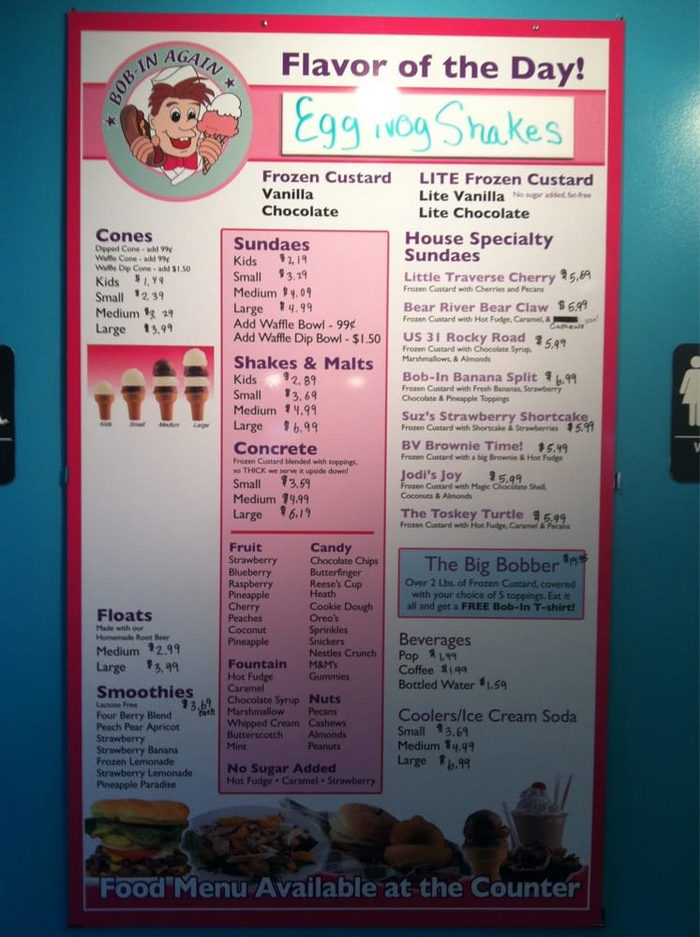 BOB-IN AGAIN
Flavor of the Day!
Egg nog Shakes
Frozen Custard
Vanilla
Chocolate
LITE Frozen Custard
Lite Vanilla No sugar added, fat-free
Lite Chocolate
Cones
Dipped Cone - add 99¢
Waffle Cone - add 99¢
Waffle Dip Cone - add $1.50
Kids $1.49
Small $2.39
Medium $3.29
Large $3.99
Kids Small Medium Large
Floats
Made with our
Homemade Root Beer
Medium $2.99
Large $3.99
Smoothies
Lactose Free $3.69 each
Four Berry Blend
Peach Pear Apricot
Strawberry
Strawberry Banana
Frozen Lemonade
Strawberry Lemonade
Pineapple Paradise
Sundaes
Kids $2.19
Small $3.29
Medium $4.09
Large $4.99
Add Waffle Bowl - 99¢
Add Waffle Dip Bowl - $1.50
Shakes & Malts
Kids $2.89
Small $3.69
Medium $4.99
Large $6.99
Concrete
Frozen Custard blended with toppings,
so THICK we serve it upside down!
Small $3.59
Medium $4.99
Large $6.19
Fruit
Strawberry
Blueberry
Raspberry
Pineapple
Cherry
Peaches
Coconut
Pineapple
Fountain
Hot Fudge
Caramel
Chocolate Syrup
Marshmallow
Whipped Cream
Butterscotch
Mint
Candy
Chocolate Chips
Butterfinger
Reese's Cup
Heath
Cookie Dough
Oreo's
Sprinkles
Snickers
Nestles Crunch
M&M's
Gummies
Nuts
Pecans
Cashews
Almonds
Peanuts
No Sugar Added
Hot Fudge • Caramel • Strawberry
House Specialty
Sundaes
Little Traverse Cherry $5.69
Frozen Custard with Cherries and Pecans
Bear River Bear Claw $6.99
Frozen Custard with Hot Fudge, Caramel, &
Cashews
US 31 Rocky Road $5.99
Frozen Custard with Chocolate Syrup,
Marshmallows, & Almonds
Bob-In Banana Split $6.99
Frozen Custard with Fresh Bananas, Strawberry
Chocolate & Pineapple Toppings
Suz's Strawberry Shortcake
Frozen Custard with Shortcake & Strawberries $5.99
BV Brownie Time! $5.49
Frozen Custard with a big Brownie & Hot Fudge
Jodi's Joy $5.99
Frozen Custard with Magic Chocolate Shell,
Coconuts & Almonds
The Toskey Turtle $5.99
Frozen Custard with Hot Fudge, Caramel & Pecans
The Big Bobber $19.95
Over 2 Lbs. of Frozen Custard, covered
with your choice of 5 toppings. Eat it
all and get a FREE Bob-In T-shirt!
Beverages
Pop $1.99
Coffee $1.99
Bottled Water $1.59
Coolers/Ice Cream Soda
Small $3.69
Medium $4.99
Large $6.99
Food Menu Available at the Counter